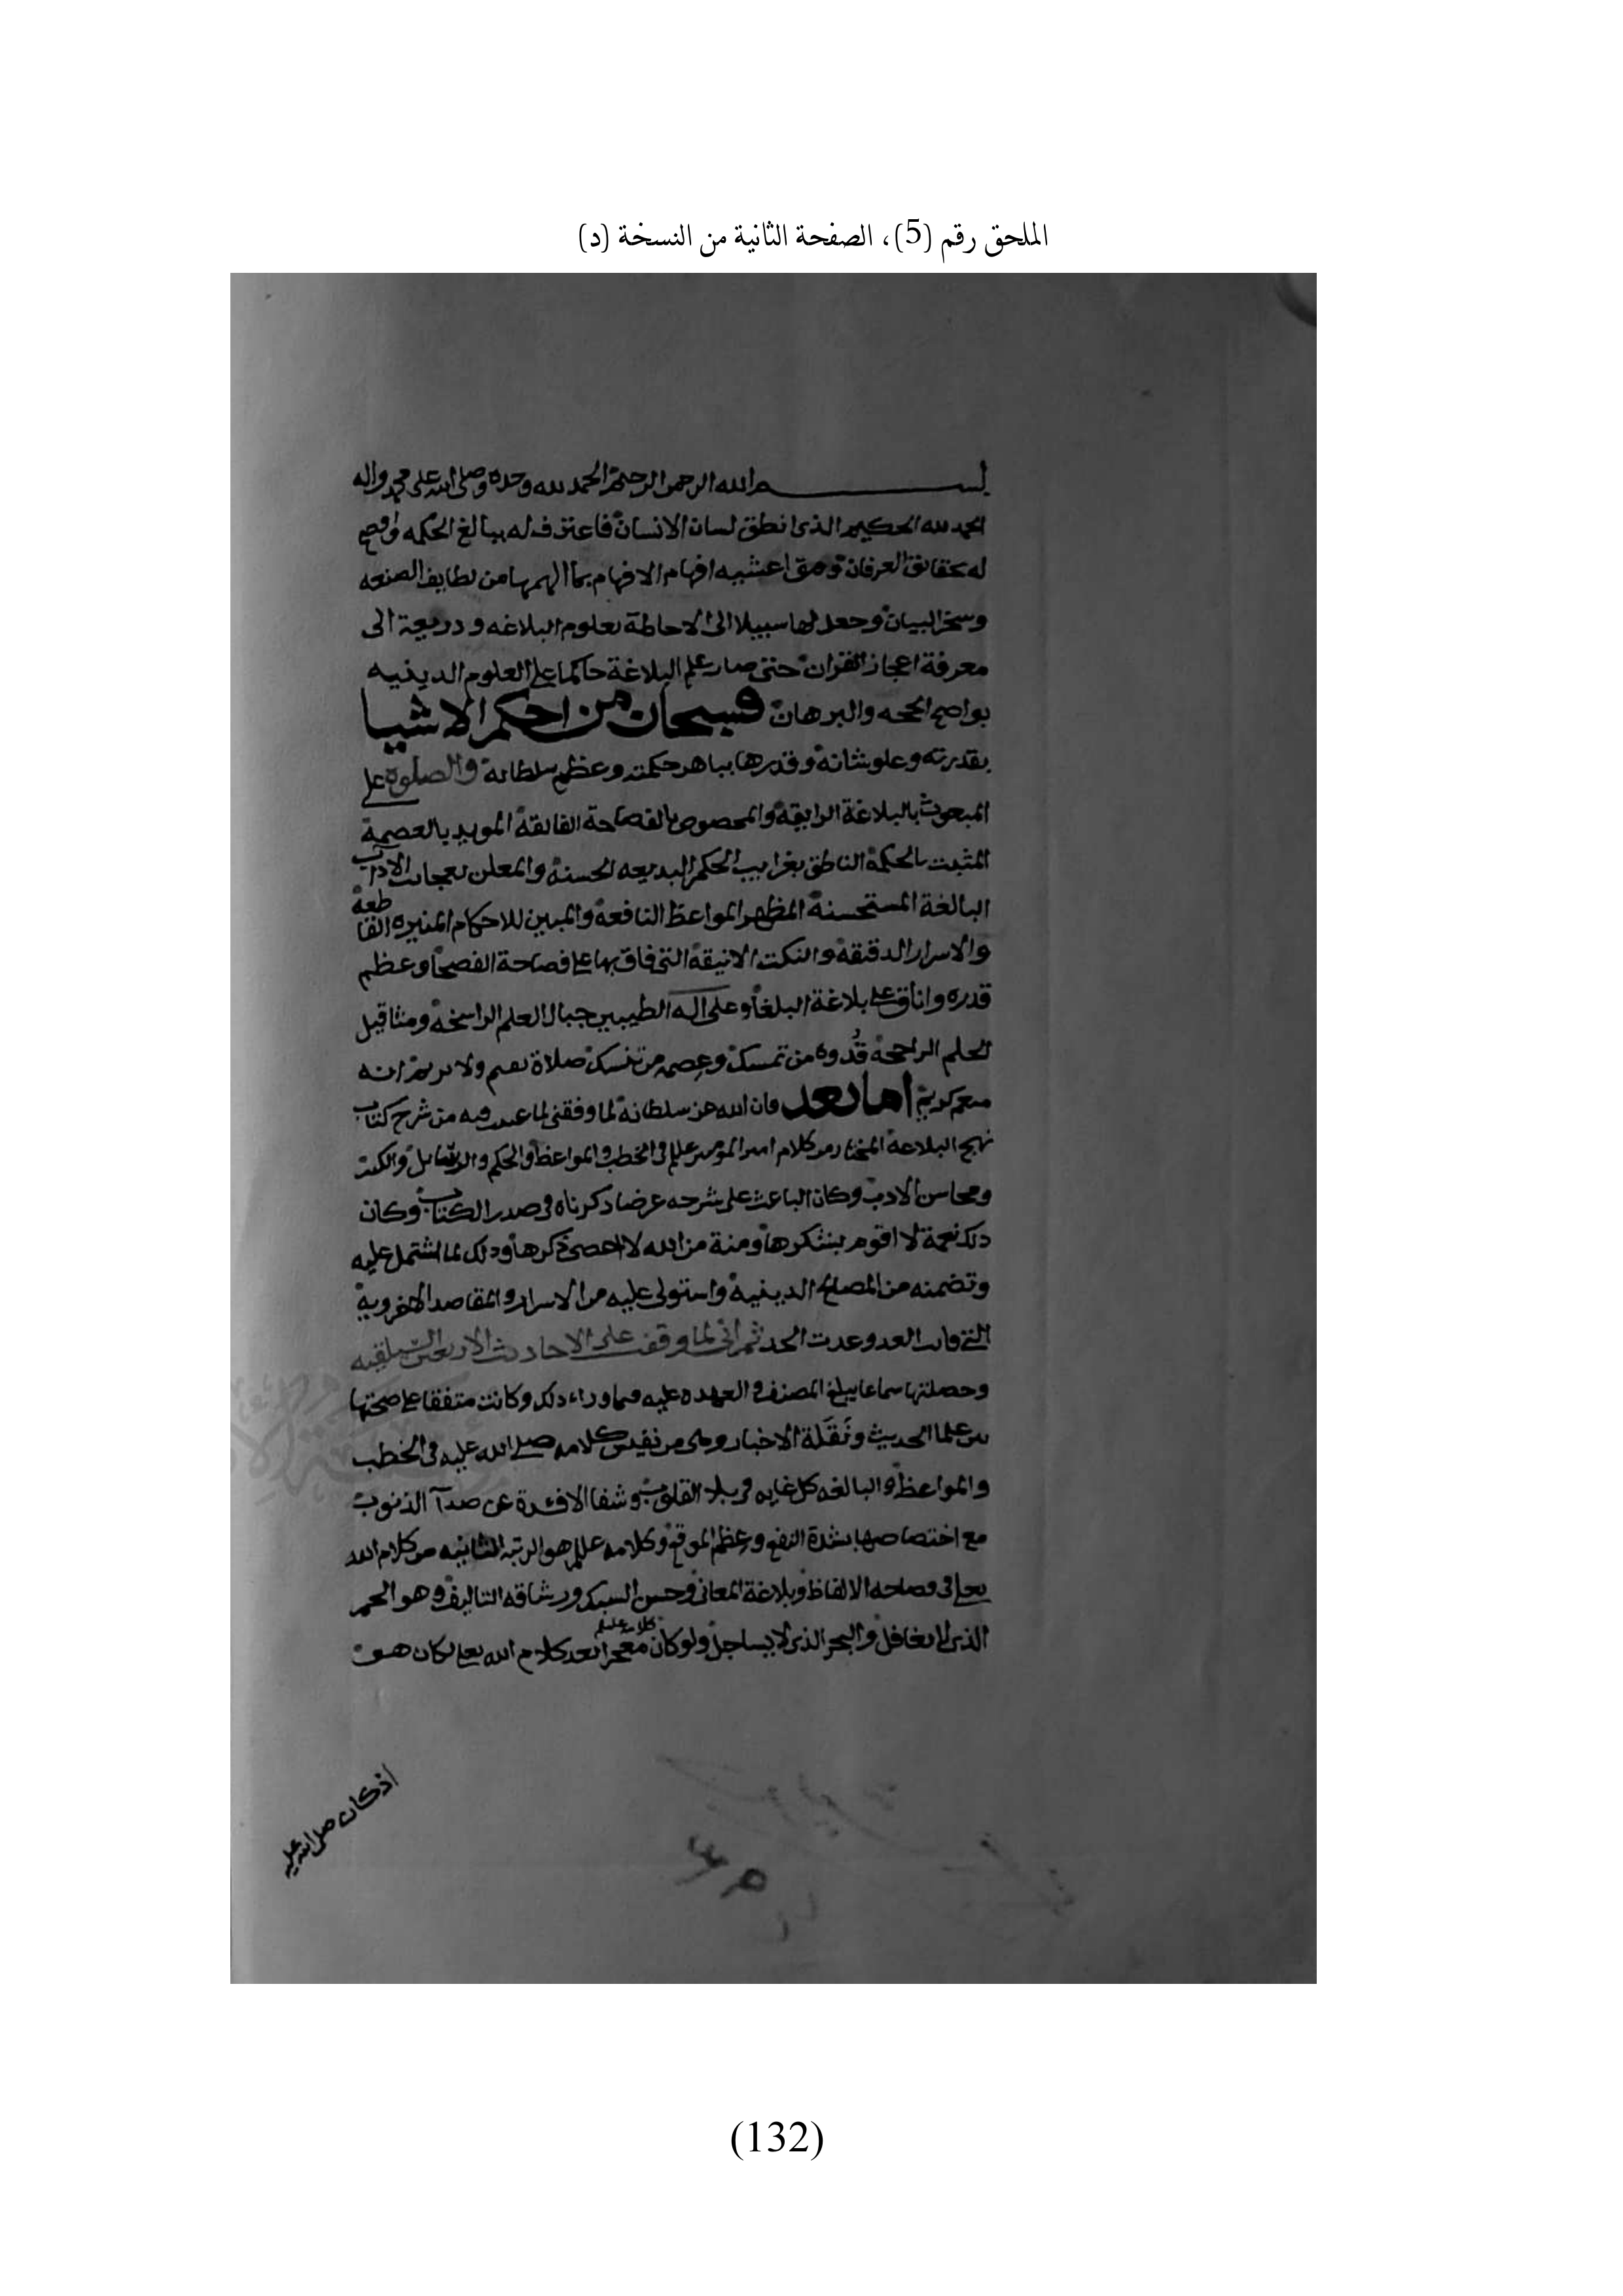 الملحق رقم (5)، الصفحة الثانية من النسخة (د)
بسم الله الرحمن الرحيم الحمد لله وحده وصلى الله على محمد واله
الحمد لله الحكيم الذى انطق لسان الانسان فاعترف له ببالغ الحكمه واوضح
له بحقائق العرفان افهام الافهام بما الهمها من لطايف الصنعه
وسخر البيان وجعل لها سبيلا الى الاحاطة بعلوم البلاغه وذريعة الى
معرفة اعجاز القران حتى صار علم البلاغة حاكما على العلوم الدينيه
بواضح الحجه والبرهان فسبحان من احكم الاشيا
بقدرته وعلو شانه وقدرها بباهر حكمته وعظم سلطانه والصلوة على
المبعوث بالبلاغة الرايقة والمخصوص بالفصاحة الفائقة المويد بالعصمة
المثبت بالحكمة الناطق بغرايب الحكم البديعه الحسنة والمعلن الاداب
البالغة المستحسنة المظهر المواعظ النافعة والمبين للاحكام المنيره القاطعة
والاسرار الدقيقة والنكت الانيقة التى فاق بها على فصاحة الفصحا وعظم
قدره واناف على بلاغة البلغا وعلى اله الطيبين جبال العلم الراسخة ومثاقيل
الحلم الراجحة قدوه من تمسك وعصمه من تنسك صلاة
منعم كريم اما بعد فان الله عز سلطانه لما وفقنى لما فيه من شرح كتاب
نهج البلاغة المختار من كلام امير المومنين عللم فى الخطب والمواعظ والحكم والرسايل والكتب
ومحاسن الادب وكان الباعث على شرحه غرضا ذكرناه فى صدر الكتاب وكان
ذلك نعمة لا اقوم بشكرها ومنة من الله لا احصى ذكرها وذلك لما اشتمل عليه
وتضمنه من المصالح الدينية واستولى عليه من الاسرار والمقاصد الاخروية
التى فاتت العد وعدت الحد ثم انى لما وقفت على الاحاديث الاربعين السيلقيه
وحصلتها سماعا يبلغ المصنف والعهده عليه فيما وراء ذلك وكانت متفقا على صحتها
بين علما الحديث ونقلة الاخبار وهى من نفيس كلامه صلى الله عليه فى الخطب
والمواعظ والبالغه كل غايه فى جلا القلوب وشفا الافئدة عن صدآ الذنوب
مع اختصاصها بشدة النفع وعظم الموقع وكلامه علللم هو الرتبه الثانيه من كلام الله
تعالى فى فصاحه الالفاظ وبلاغة المعانى وحسن السبك ورشاقه التاليف وهو
الذى لا والبحر الذى لا يساجل ولو كان معجز بعد كلام الله تعالى لكان هو
اذ كان صلى الله عليه
(132)